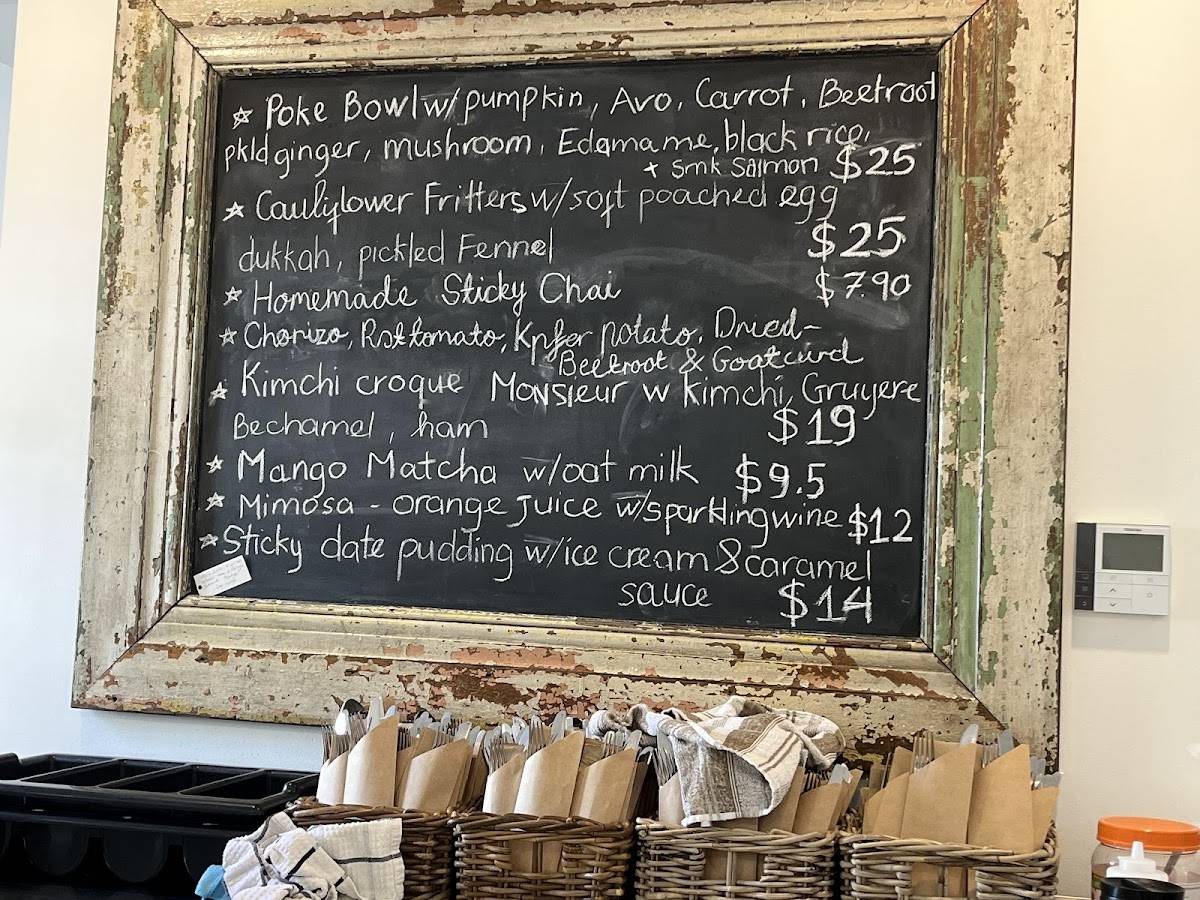 ☆ Poke Bowl w/ pumpkin, Avo, Carrot, Beetroot
pkld ginger, mushroom, Edamame, black rice,
+ Smk Salmon $25
☆ Caulyflower Fritters w/soft poached egg
dukkah, pickled Fennel $25
☆ Homemade Sticky Chai $7.90
☆ Chorizo, Rst tomato, Kpfler potato, Dried-
Beetroot & Goatcurd
☆ Kimchi croque Monsieur w kimchi, Gruyere
Bechamel, ham $19
☆ Mango Matcha w/oat milk $9.5
☆ Mimosa - orange juice w/sparkling wine $12
☆ Sticky date pudding w/ice cream & caramel
sauce $14